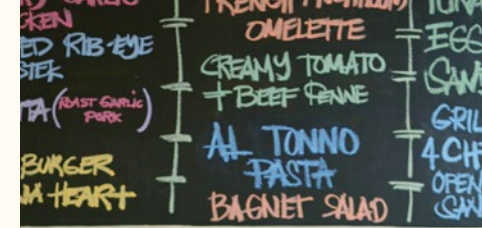 GARLIC
KEN
ED RIB-EYE
STEK
TA (ROAST GARLIC
PORK)
BURGER
HEART
FRENCH
OMELETTE
CREAMY TOMATO
+ BEEF PENNE
AL TONNO
PASTA
BAGNET SALAD
TUNA
EGG
SAN
GRIL
4 CH
OPEN
SAN